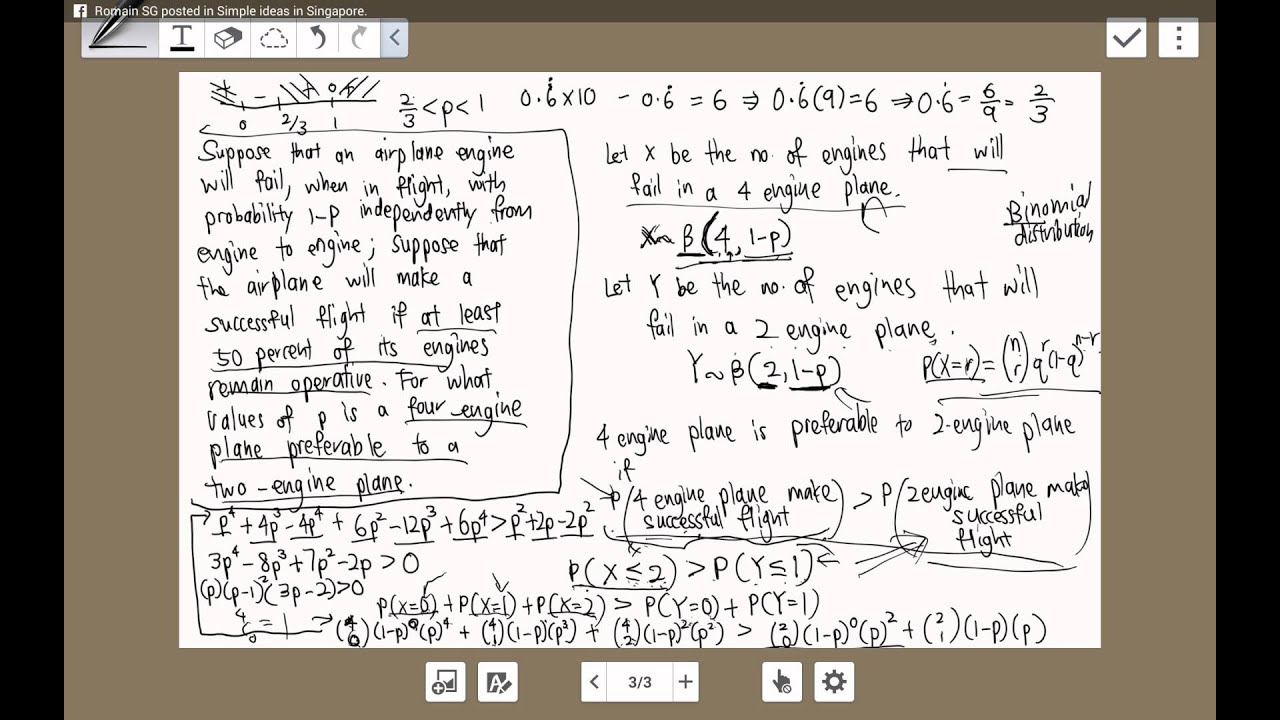 Romain SG posted in Simple ideas in Singapore.
T
0 2/3 1
2/3 < p < 1
0.6̇ x 10 - 0.6̇ = 6 ⇒ 0.6̇(9) = 6 ⇒ 0.6̇ = 6/9 = 2/3
Suppose that an airplane engine
will fail, when in flight, with
probability 1-p independently from
engine to engine; suppose that
the airplane will make a
successful flight if at least
50 percent of its engines
remain operative. For what
values of p is a four-engine
plane preferable to a
two-engine plane.
p⁴ + 4p³ - 4p⁴ + 6p² - 12p³ + 6p⁴ > p² + 2p - 2p²
3p⁴ - 8p³ + 7p² - 2p > 0
(p)(p-1)²(3p-2) > 0
Let X be the no. of engines that will
fail in a 4 engine plane.
X ~ B(4, 1-p)
Binomial
distribution
Let Y be the no. of engines that will
fail in a 2 engine plane.
Y ~ B(2, 1-p)
P(X=r) = (n r) q^r (1-q)^n-r
4 engine plane is preferable to 2-engine plane
if
P(4 engine plane make successful flight) > P(2 engine plane make successful flight)
P(X ≤ 2) > P(Y ≤ 1)
P(X=0) + P(X=1) + P(X=2) > P(Y=0) + P(Y=1)
(4 0)(1-p)⁰(p)⁴ + (4 1)(1-p)¹(p³) + (4 2)(1-p)²(p²) > (2 0)(1-p)⁰(p)² + (2 1)(1-p)(p)
3/3